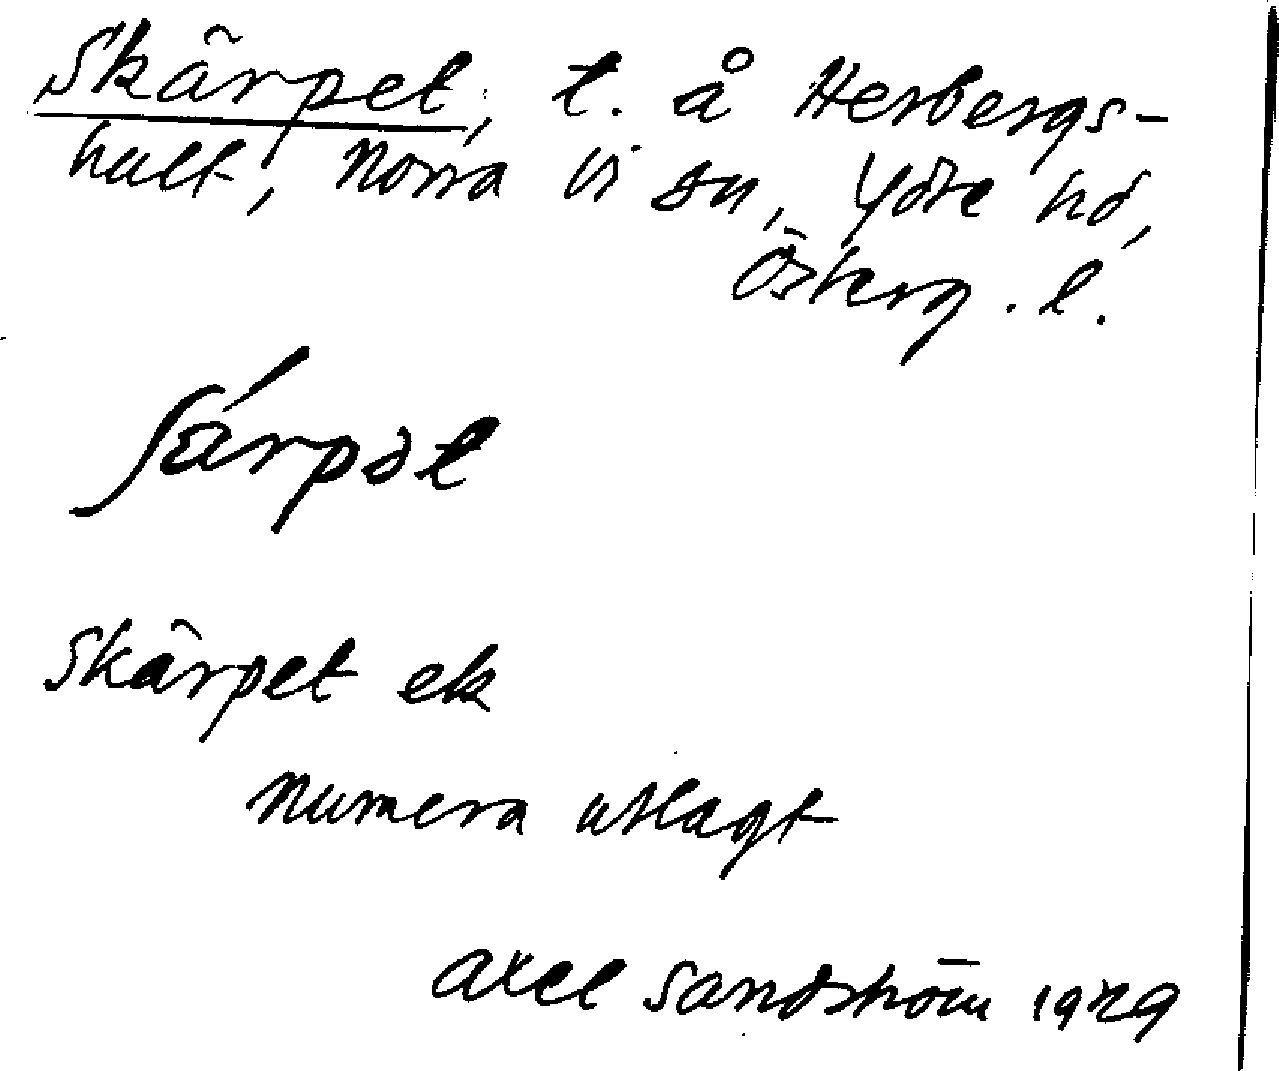 Skärpet, t. å Herbergs-
hult, Norra Vi sn, Ydre hd,
Österg. l.
ſärpət
Skärpet ek
numera utlagt
Axel Sandström 1929